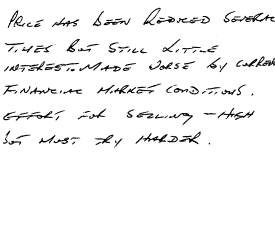 PRICE HAS BEEN REDUCED SEVERAL
TIMES BUT STILL LITTLE
INTEREST. MADE WORSE BY CURREN
FINANCIAL MARKET CONDITIONS.
EFFORT FOR SELLING - HIGH
BUT MUST TRY HARDER.